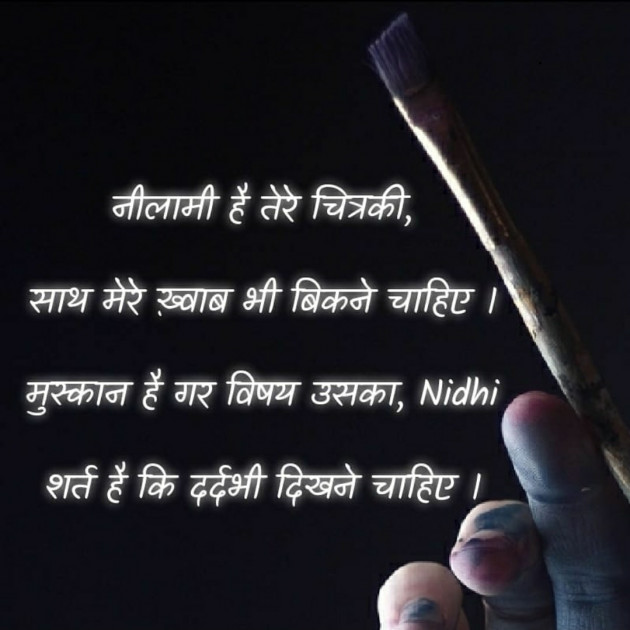 नीलामी है तेरे चित्रकी,
साथ मेरे ख़्वाब भी बिकने चाहिए ।
मुस्कान है गर विषय उसका, Nidhi
शर्त है कि दर्दभी दिखने चाहिए ।